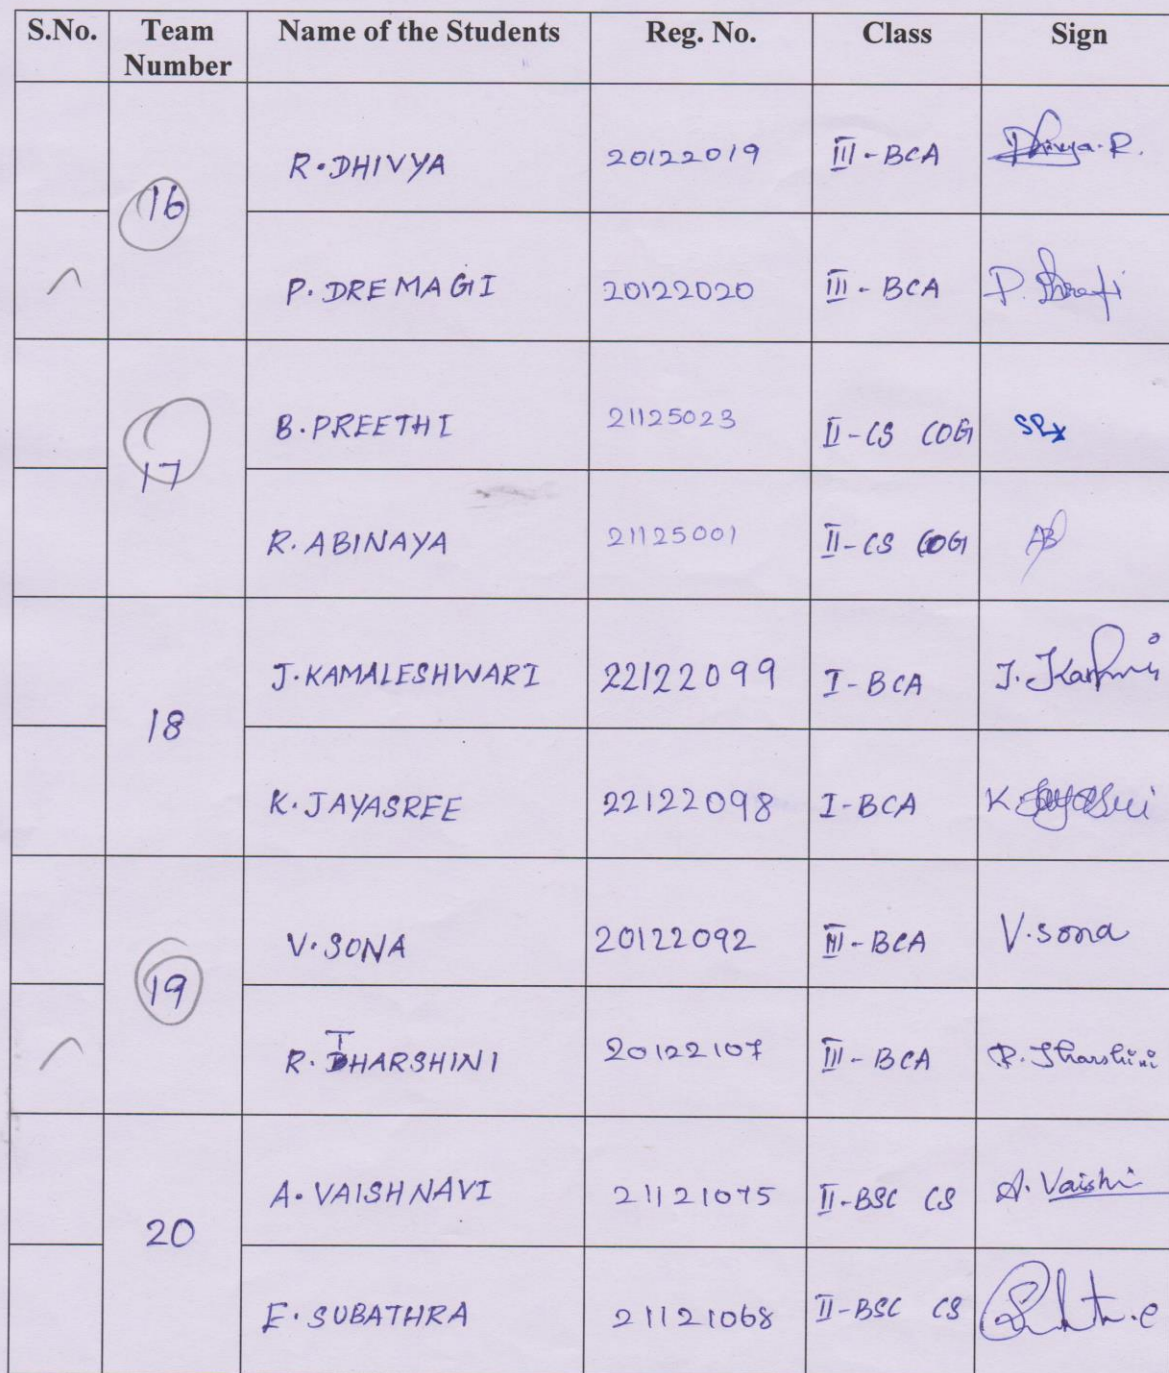 S.No. Team Number Name of the Students Reg. No. Class Sign
16
R. DHIVYA 20122019 III - BCA Dhivya. R.
P. DREMAGI 20122020 III - BCA P.
17
B. PREETHI 21125023 II - CS COG
R. ABINAYA 21125001 II - CS COG AB
18
J. KAMALESHWARI 22122099 I - BCA J.
K. JAYASREE 22122098 I - BCA K.
19
V. SONA 20122092 III - BCA V. sona
R. THARSHINI 20122107 III - BCA R. Tharshini
20
A. VAISHNAVI 21121075 II - BSC CS A. Vaishi
E. SUBATHRA 21121068 II - BSC CS